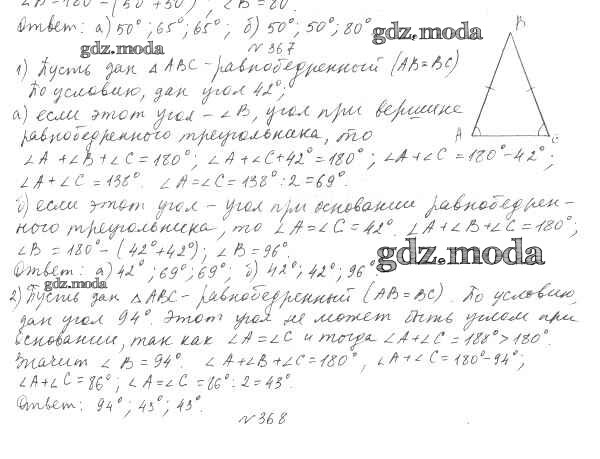 ∠A=180°-(50°+50°); ∠B=80°
Ответ: а) 50°; 65°; 65°; б) 50°; 50°; 80°
gdz.moda
gdz.moda
№ 367
B
1) Пусть дан △ABC - равнобедренный (AB=BC)
По условию, дан угол 42°;
а) если этот угол - ∠B, угол при вершине
равнобедренного треугольника, то
A C
∠A+∠B+∠C=180°; ∠A+∠C+42°=180°; ∠A+∠C=180°-42°;
∠A+∠C=138°. ∠A=∠C=138°:2=69°.
б) если этот угол - угол при основании равнобедрен-
ного треугольника, то ∠A=∠C=42°. ∠A+∠B+∠C=180°;
∠B=180°-(42°+42°); ∠B=96°.
gdz.moda
Ответ: а) 42°; 69°; 69°; б) 42°; 42°; 96°.
gdz.moda
2) Пусть дан △ABC - равнобедренный (AB=BC). По условию,
дан угол 94°. Этот угол не может быть углом при
основании, так как ∠A=∠C и тогда ∠A+∠C=188°>180°.
Значит ∠B=94°. ∠A+∠B+∠C=180°, ∠A+∠C=180°-94°;
∠A+∠C=86°; ∠A=∠C=86°:2=43°.
Ответ: 94°; 43°; 43°.
№ 368